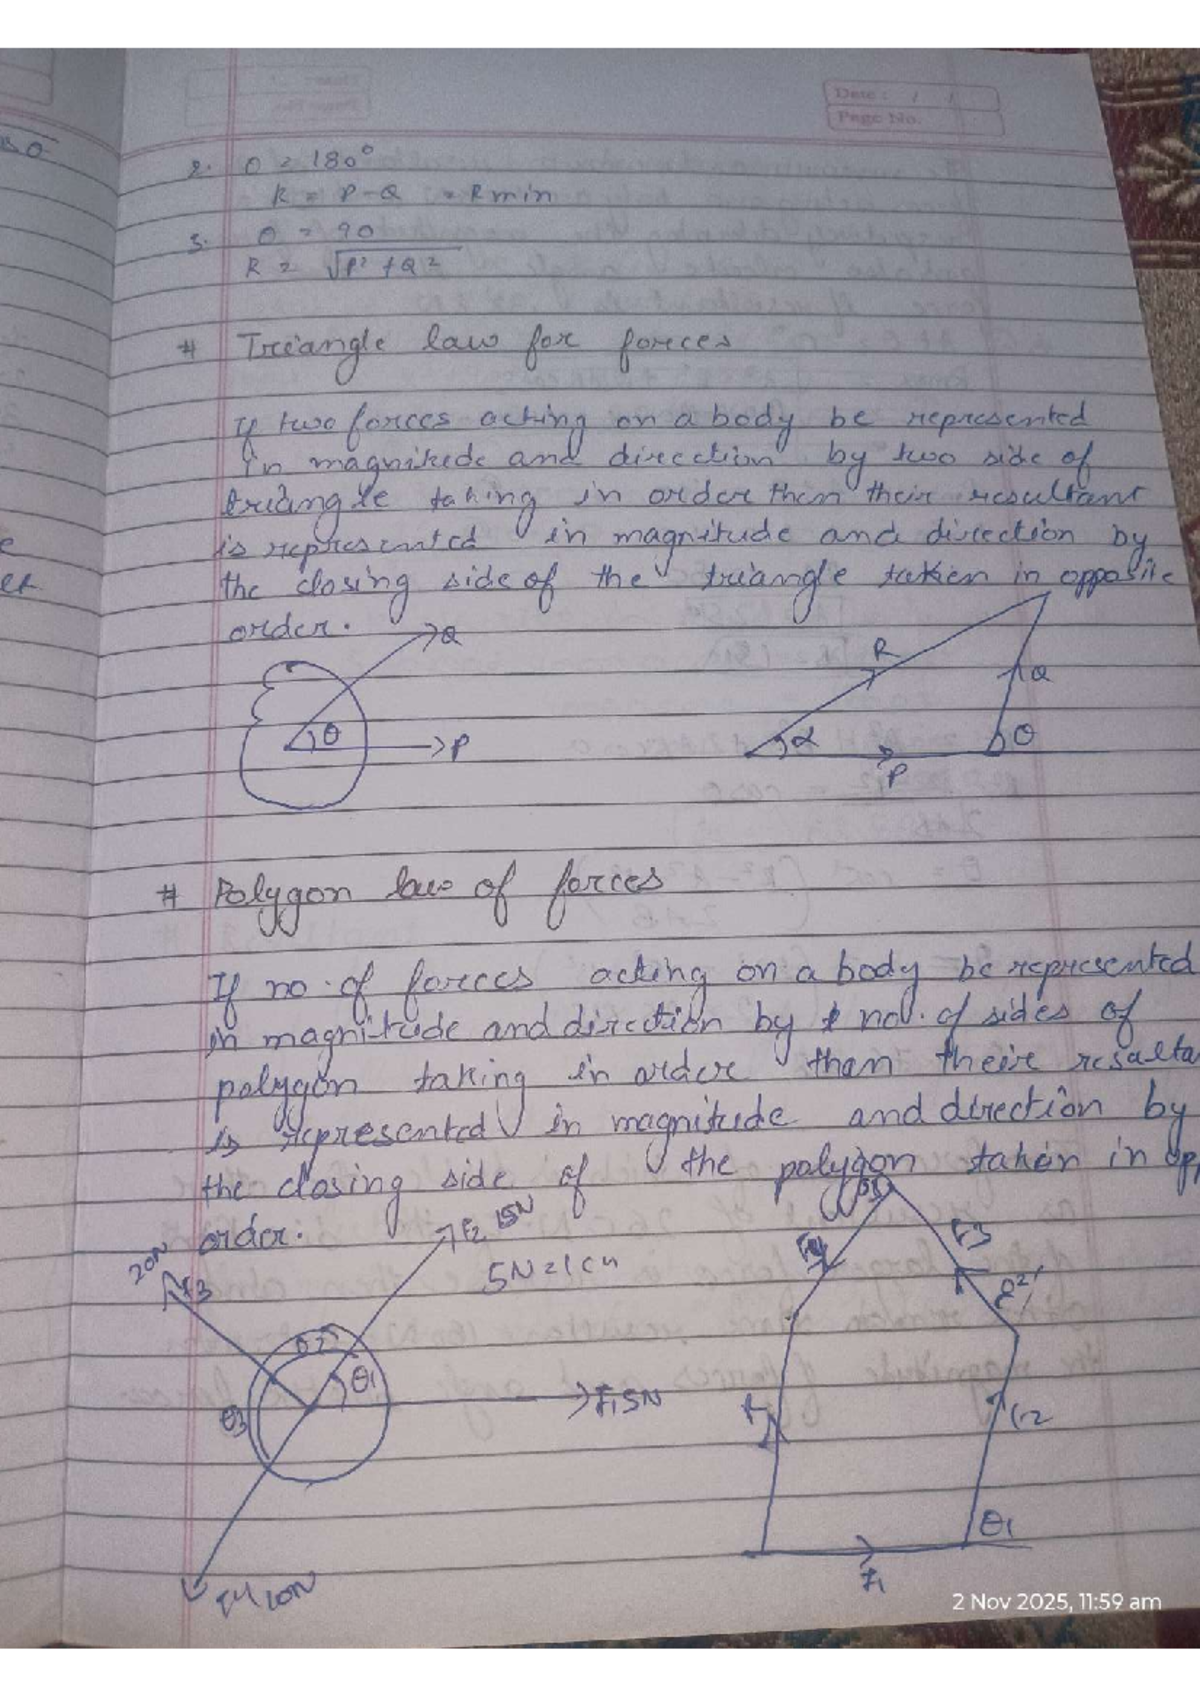 Date : / /
Page No.
2. θ = 180°
R = P - Q = Rmin
3. θ = 90
R = √P² + Q²
# Triangle law for forces
If two forces acting on a body be represented
in magnitude and direction by two side of
triangle taking in order then their resultant
is represented in magnitude and direction by
the closing side of the triangle taken in opposite
order.
Q
θ
P
R
Q
α
θ
P
# Polygon law of forces
If no. of forces acting on a body be represented
in magnitude and direction by no. of sides of
polygon taking in order than their resulta
is represented in magnitude and direction by
the closing side of the polygon taken in opp
order.
F2 15N
20N
F3
5N = 1cm
θ2
θ1
θ3
F1 5N
F4 10N
θ3
F4
F3
θ2
F2
θ1
F1
2 Nov 2025, 11:59 am